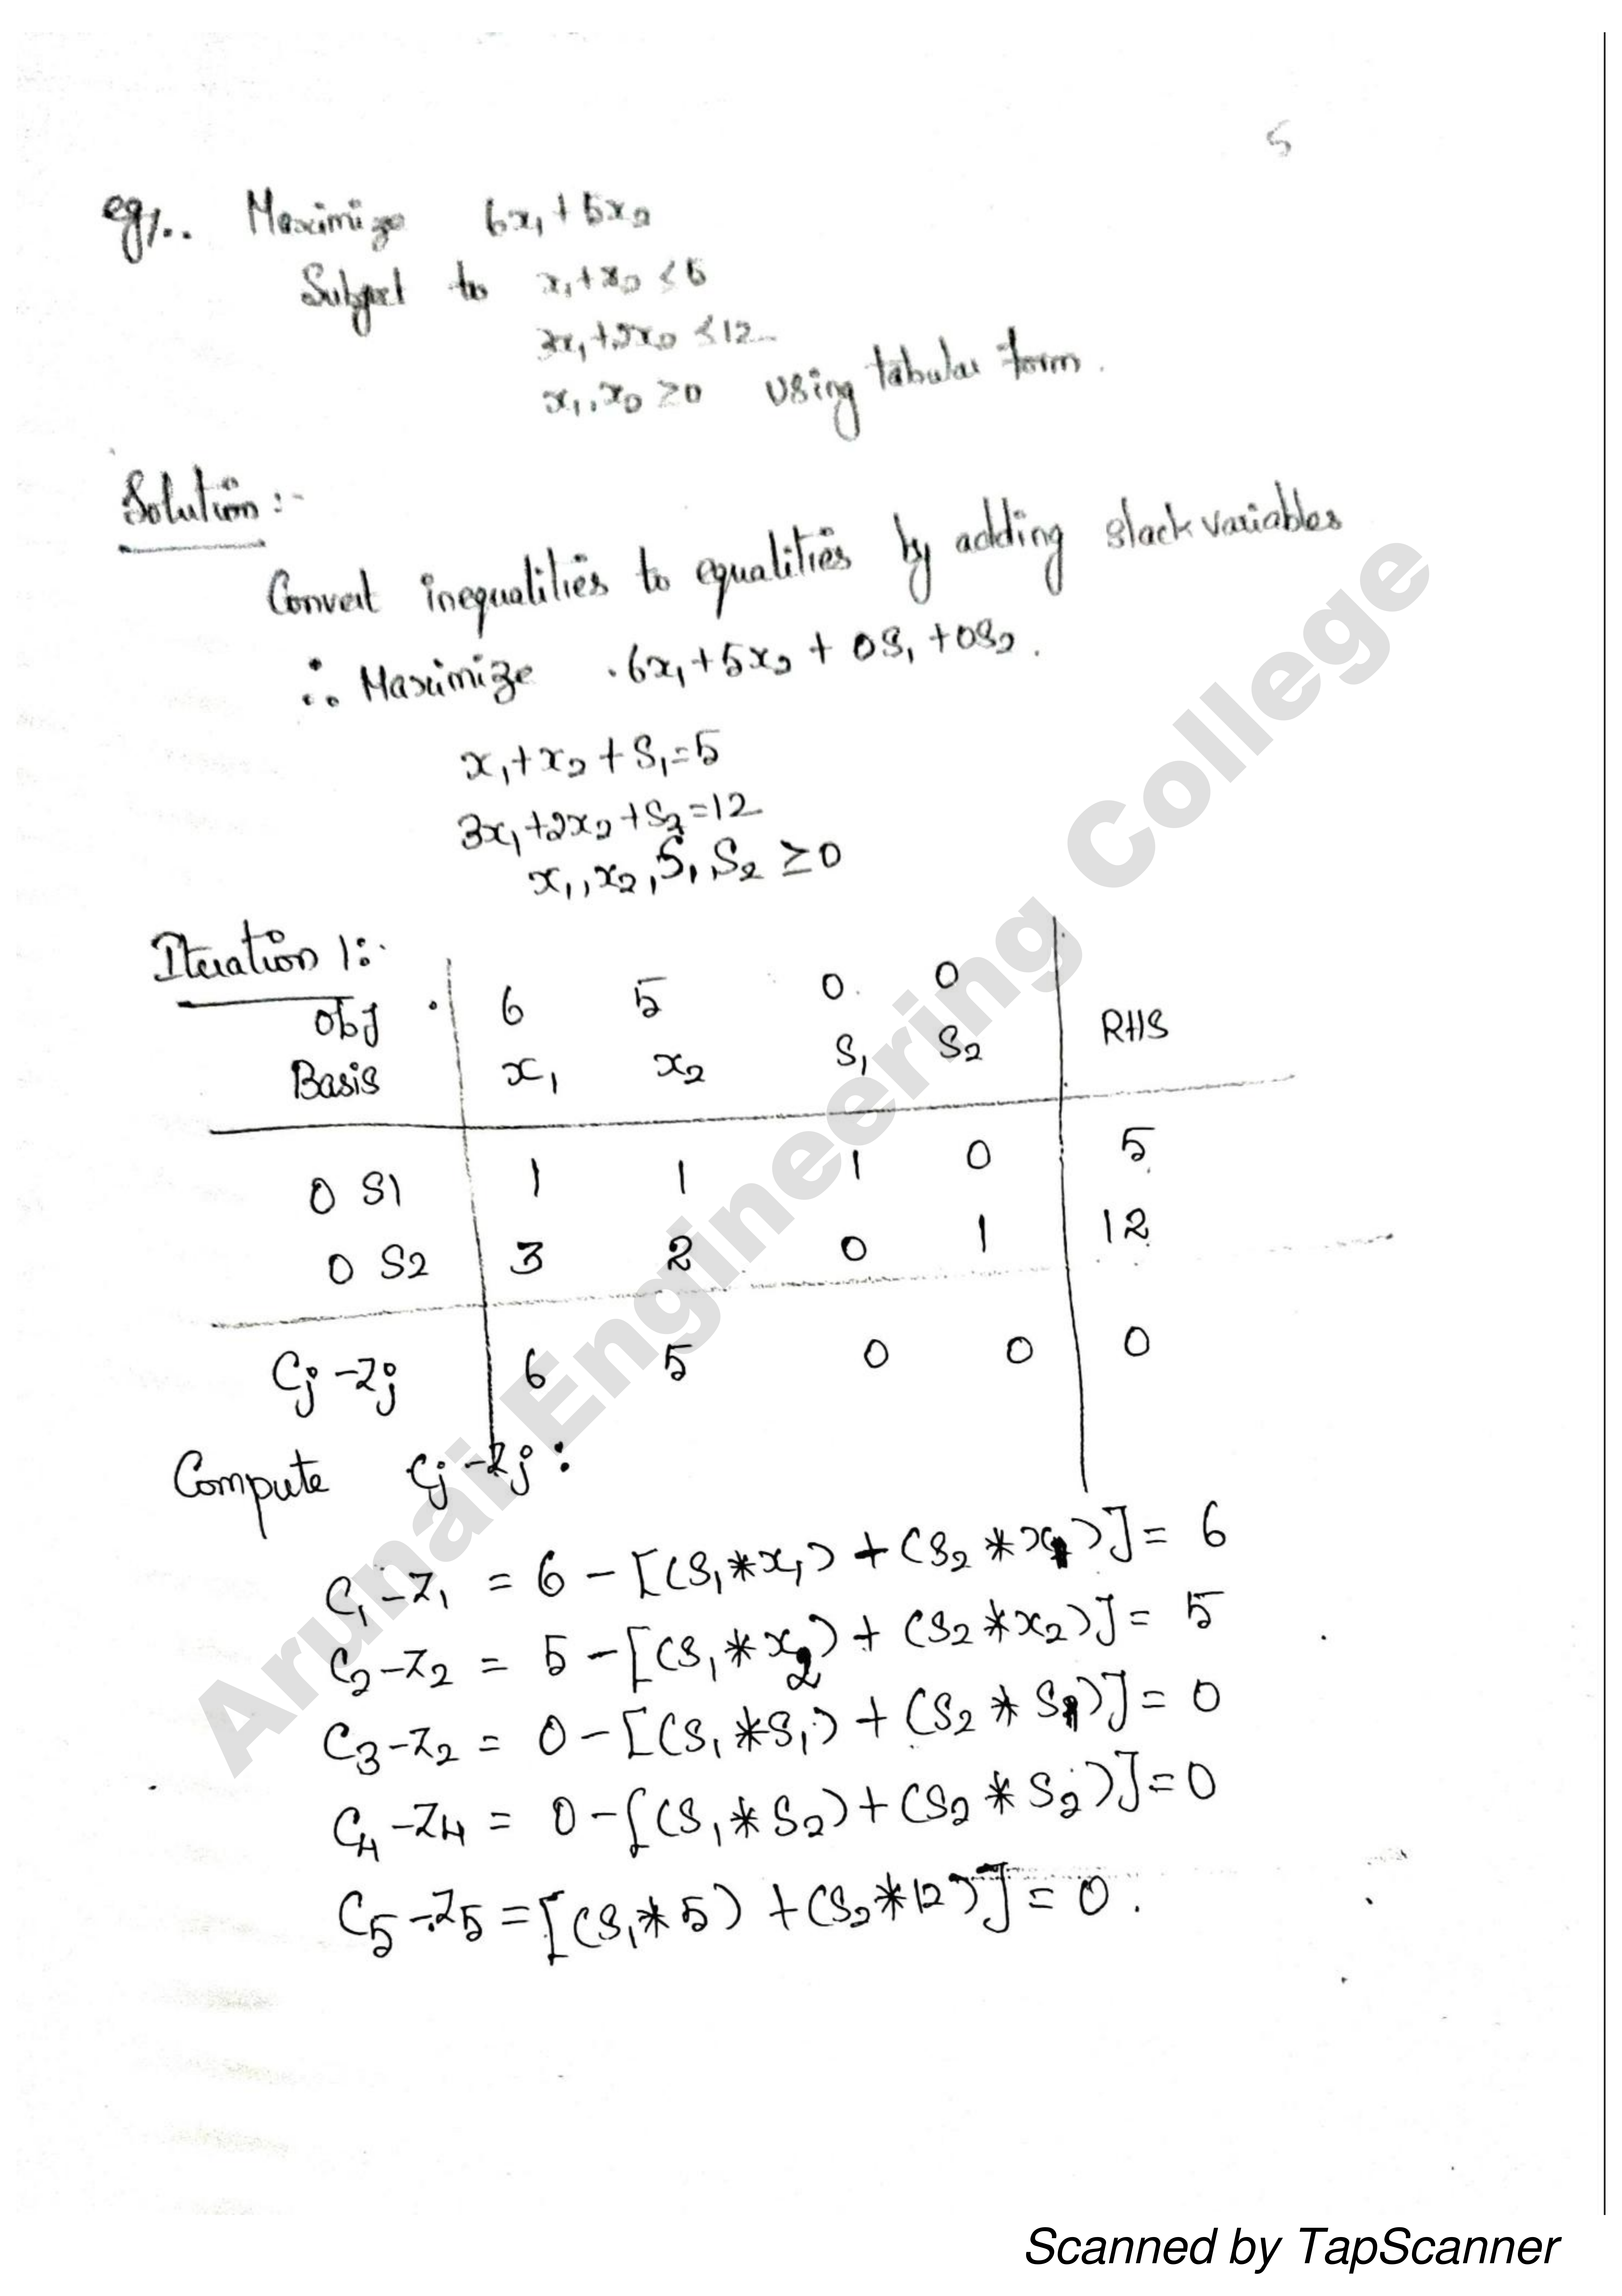 5
eg1.. Maximize 6x₁ + 5x₂
Subject to x₁ + x₂ ≤ 5
3x₁ + 2x₂ ≤ 12
x₁, x₂ ≥ 0 using tabular form.
Solution :-
Convert inequalities to equalities by adding slack variables
∴ Maximize 6x₁ + 5x₂ + 0S₁ + 0S₂.
x₁ + x₂ + S₁ = 5
3x₁ + 2x₂ + S₂ = 12
x₁, x₂, S₁, S₂ ≥ 0
Iteration 1:
Obj 6 5 0 0
Basis x₁ x₂ S₁ S₂ RHS
0 S1 1 1 1 0 5
0 S2 3 2 0 1 12
Cj - Zj 6 5 0 0 0
Compute Cj - Zj :
C₁ - Z₁ = 6 - [(S₁ * x₁) + (S₂ * x₁)] = 6
C₂ - Z₂ = 5 - [(S₁ * x₂) + (S₂ * x₂)] = 5
C₃ - Z₂ = 0 - [(S₁ * S₁) + (S₂ * S₁)] = 0
C₄ - Z₄ = 0 - [(S₁ * S₂) + (S₂ * S₂)] = 0
C₅ - Z₅ = [(S₁ * 5) + (S₂ * 12)] = 0.
Arunai Engineering College
Scanned by TapScanner